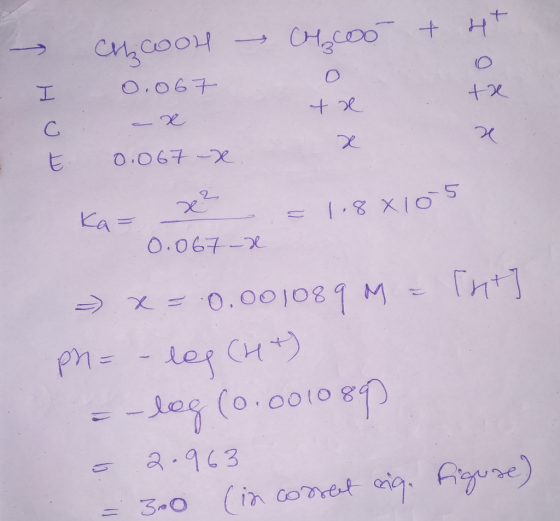 → CH₃COOH → CH₃COO⁻ + H⁺
I 0.067 0 0
C -x +x +x
E 0.067-x x x
Ka = x² / 0.067-x = 1.8 × 10⁻⁵
⇒ x = 0.001089 M = [H+]
pH = -log(H+)
= -log(0.001089)
= 2.963
= 3.0 (in correct sig. figure)